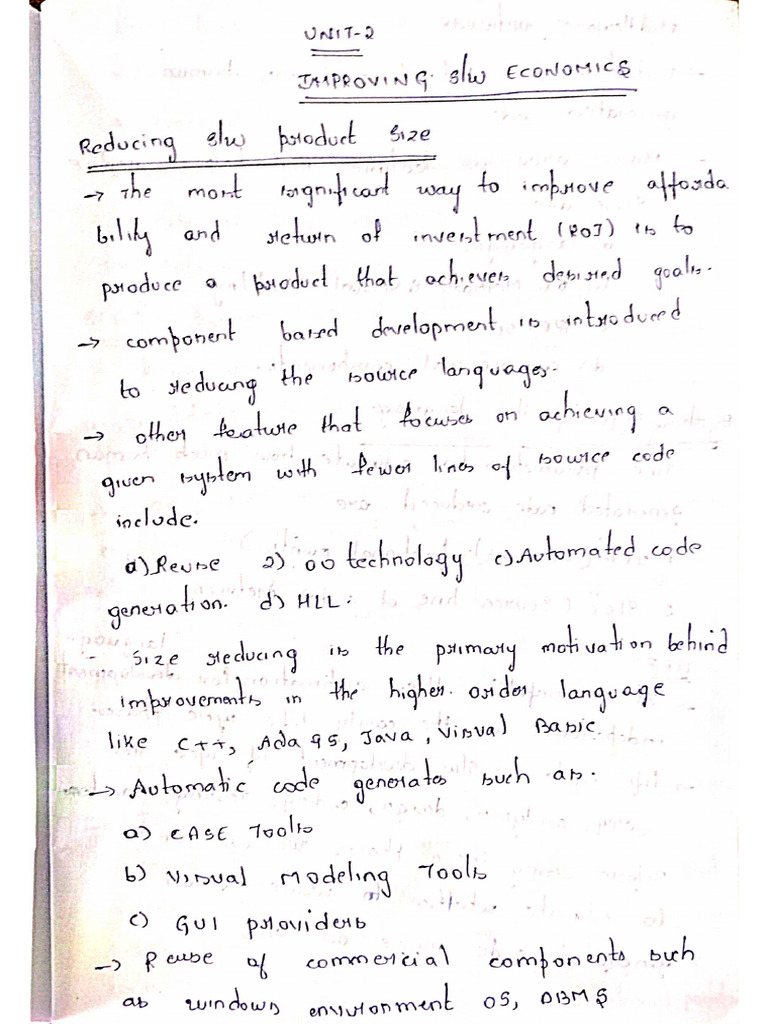 UNIT-2
IMPROVING s/w ECONOMICS
Reducing s/w product size
→ The most significant way to improve afforda
bility and return of investment (ROI) is to
produce a product that achieves desired goals.
→ component based development is introduced
to reducing the source languages.
→ other feature that focuses on achieving a
given system with fewer lines of source code
include.
a) Reuse 2) OO technology c) Automated code
generation. d) HLL.
- Size reducing is the primary motivation behind
improvements in the higher order language
like C++, Ada 95, Java, Visual Basic.
→ Automatic code generates such as.
a) CASE Tools
b) Visual Modeling Tools
c) GUI providers
→ Reuse of commercial components such
as windows environment OS, DBMS